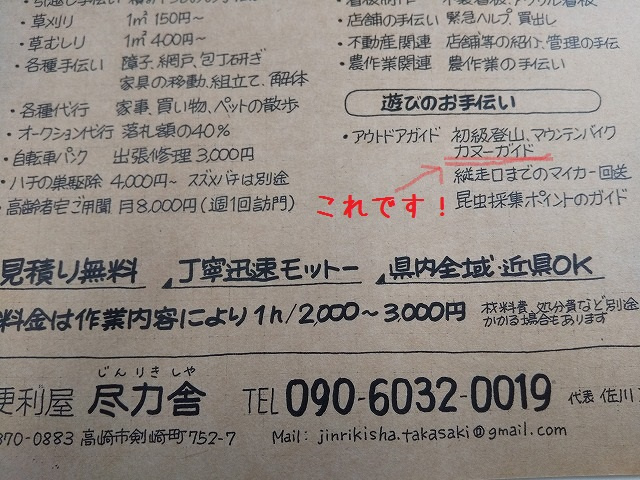 引越し手伝い
・草刈り 1㎡ 150円～
・草むしり 1㎡ 400円～
・各種手伝い 障子、網戸、包丁研ぎ
家具の移動、組立て、解体
・各種代行 家事、買い物、ペットの散歩
・オークション代行 落札額の40%
・自転車パンク 出張修理 3,000円
・ハチの巣駆除 4,000円～ スズメバチは別途
・高齢者宅ご用聞 月8,000円(週1回訪門)
・店舗の手伝い 緊急ヘルプ、買出し
・不動産関連 店舗等の紹介、管理の手伝
・農作業関連 農作業の手伝い
遊びのお手伝い
・アウトドアガイド 初級登山、マウンテンバイク
カヌーガイド
縦走口までのマイカー回送
昆虫採集ポイントのガイド
これです！
見積り無料 丁寧迅速モットー 県内全域・近県OK
料金は作業内容により 1h/2,000～3,000円 材料費、処分費など別途
かかる場合もあります
じんりきしゃ
便利屋 尽力舎 TEL 090-6032-0019 代表 佐川
370-0883 高崎市剣崎町752-7 Mail: jinrikisha.takasaki@gmail.com